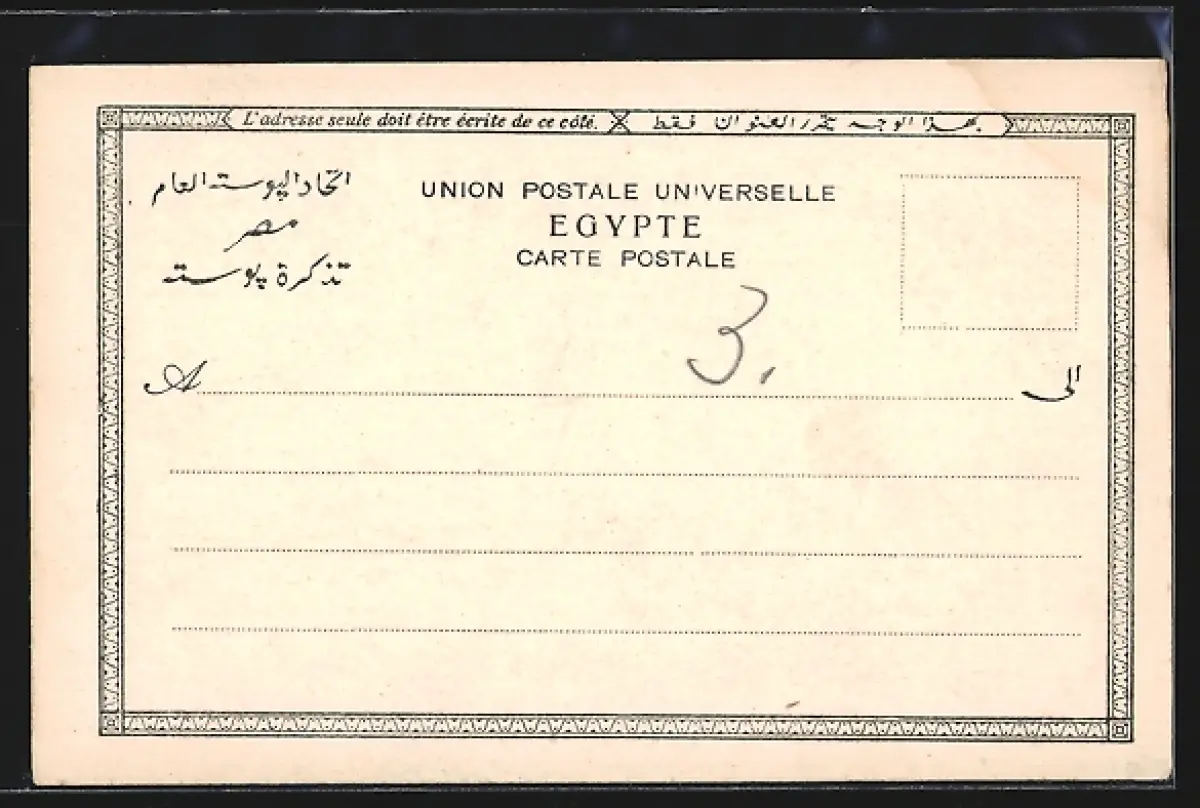 L'adresse seule doit être écrite de ce côté. بهذا الوجه يحرر العنوان فقط
اتحاد اليوسته العام
مصر
تذكرة پوسته
UNION POSTALE UNIVERSELLE
EGYPTE
CARTE POSTALE
3.
A الى